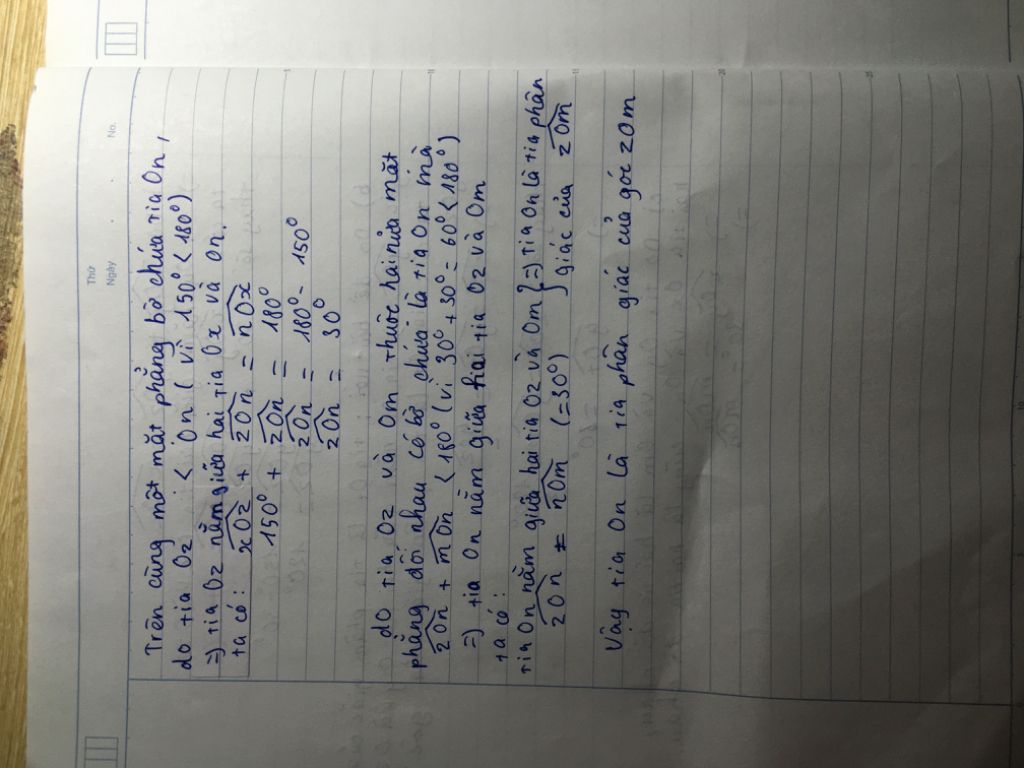 Thứ
Ngày
No.
Trên cùng một mặt phẳng bờ chứa tia On,
do tia Oz < On ( vì 150° < 180°)
=) tia Oz nằm giữa hai tia Ox và On.
ta có: xOz + zOn = nOx
150° + zOn = 180°
zOn = 180° - 150°
zOn = 30°
do tia Oz và Om thuộc hai nửa mặt
phẳng đối nhau có bờ chứa là tia On mà
zOn + mOn < 180° (vì 30° + 30° = 60° < 180°)
=) tia On nằm giữa hai tia Oz và Om
ta có:
tia On nằm giữa hai tia Oz và Om } =) tia On là tia phân
zOn = nOm (=30°) giác của zOm
Vậy tia On là tia phân giác của góc zOm